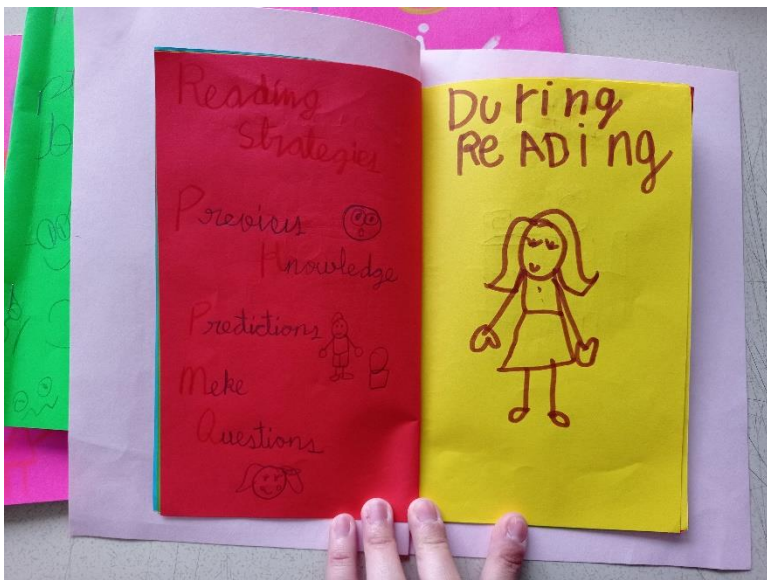 Reading
Strategies
Previsis
Knowledge
Predictions
Meke
Questions
DuRing
ReADing